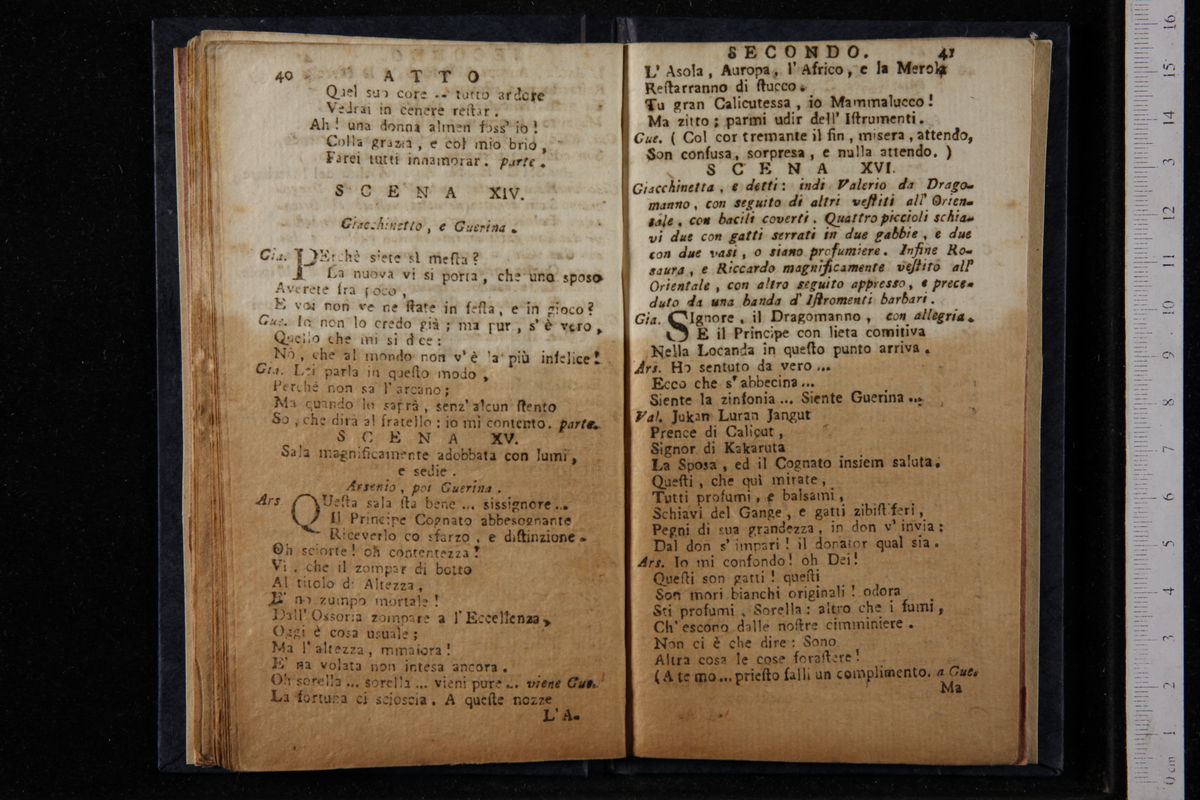 40 ATTO
Quel suo core .. tutto ardore
Vedrai in cenere reſtar.
Ah! una donna almen foss' io!
Colla grazia, e col mio brio,
Farei tutti innamorar. parte.
SCENA XIV.
Giacchinetto, e Guerina.
Gia. PErchè siete sì meſta?
La nuova vi si porta, che uno sposo
Averete fra poco,
E voi non ve ne ſtate in feſta, e in gioco?
Gue. Io non lo credo già; ma pur, s'è vero,
Quello che mi si dice:
Nò, che al mondo non v'è la più infelice!
Gia. Lei parla in queſto modo,
Perchè non sa l'arcano;
Ma quando lo saprà, senz'alcun ſtento
So, che dirà al fratello: io mi contento. parte.
SCENA XV.
Sala magnificamente adobbata con lumi,
e sedie.
Arsenio, poi Guerina.
Ars QUeſta sala ſta bene ... sissignore ..
Il Principe Cognato abbesognante
Riceverlo co sfarzo, e diſtinzione.
Oh sciorte! oh contentezza!
Vi, che il zompar di botto
Al titolo di Altezza,
E' no zumpo mortale!
Dall' Ossoria zompare a l'Eccellenza,
Oggi è cosa usuale;
Ma l'altezza, mmaiora!
E' na volata non intesa ancora.
Oh sorella ... sorella ... vieni pure ... viene Gue.
La fortuna ci scioscia. A queſte nozze
L'A-
SECONDO. 41
L'Asola, Auropa, l'Africo, e la Merola
Reſtarranno di ſtucco.
Tu gran Calicutessa, io Mammalucco!
Ma zitto; parmi udir dell' Iſtrumenti.
Gue. (Col cor tremante il fin, misera, attendo,
Son confusa, sorpresa, e nulla attendo.)
SCENA XVI.
Giacchinetta, e detti: indi Valerio da Drago-
manno, con seguito di altri veſtiti all' Orien-
tale, con bacili coverti. Quattro piccioli schia-
vi due con gatti serrati in due gabbie, e due
con due vasi, o siano profumiere. Infine Ro-
saura, e Riccardo magnificamente veſtito all'
Orientale, con altro seguito appresso, e prece-
duto da una banda d' Iſtromenti barbari.
Gia. SIgnore, il Dragomanno, con allegria.
E il Principe con lieta comitiva
Nella Locanda in queſto punto arriva.
Ars. Ho sentuto da vero ...
Ecco che s'abbecina ...
Siente la zinfonia ... Siente Guerina ...
Val. Jukan Luran Jangut
Prence di Calicut,
Signor di Kakaruta
La Sposa, ed il Cognato insiem saluta.
Queſti, che quì mirate,
Tutti profumi, e balsami,
Schiavi del Gange, e gatti zibiſferi,
Pegni di sua grandezza, in don v'invia:
Dal don s'impari! il donator qual sia.
Ars. Io mi confondo! oh Dei!
Queſti son gatti! queſti
Son mori bianchi originali! odora
Sti profumi, Sorella: altro che i fumi,
Ch'escono dalle noſtre cimminiere.
Non ci è che dire: Sono
Altra cosa le cose foraſtere!
(A te mo ... prieſto falli un complimento. a Gue.
Ma